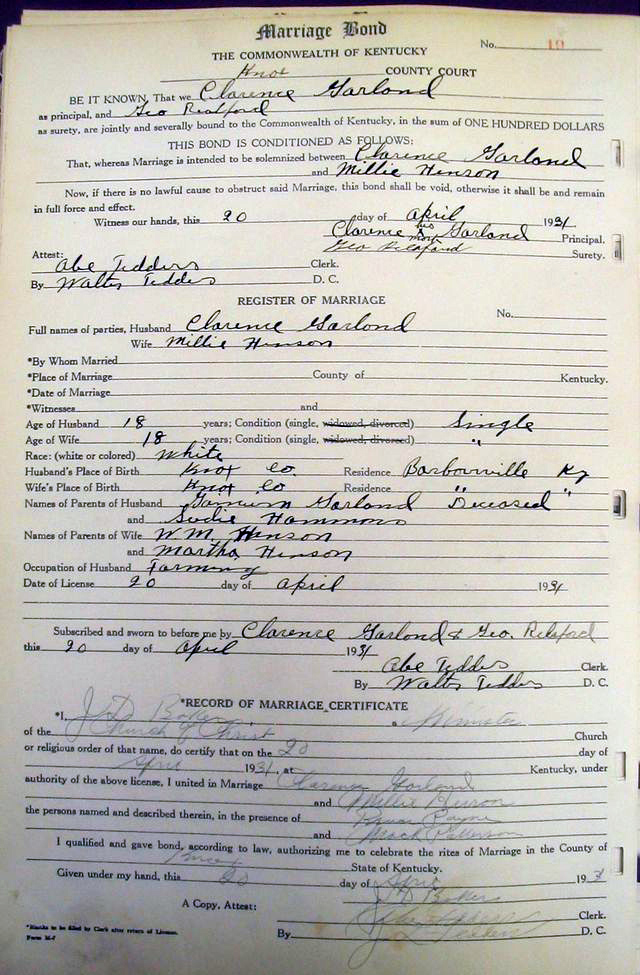 Marriage Bond
No. 19
THE COMMONWEALTH OF KENTUCKY
Knox COUNTY COURT
BE IT KNOWN, That we Clarence Garland
as principal, and Geo Relsford
as surety, are jointly and severally bound to the Commonwealth of Kentucky, in the sum of ONE HUNDRED DOLLARS
THIS BOND IS CONDITIONED AS FOLLOWS:
That, whereas Marriage is intended to be solemnized between Clarence Garland
and Millie Henson
Now, if there is no lawful cause to obstruct said Marriage, this bond shall be void, otherwise it shall be and remain
in full force and effect.
Witness our hands, this 20 day of April 1931
Clarence his x mark Garland Principal.
Geo Relsford Surety.
Attest:
Abe Tedders Clerk.
By Walter Tedders D. C.
REGISTER OF MARRIAGE
No.
Full names of parties, Husband Clarence Garland
Wife Millie Henson
*By Whom Married
*Place of Marriage County of Kentucky.
*Date of Marriage
*Witnesses and
Age of Husband 18 years; Condition (single, widowed, divorced) Single
Age of Wife 18 years; Condition (single, widowed, divorced) "
Race: (white or colored) White
Husband's Place of Birth Knox Co. Residence Barbourville Ky
Wife's Place of Birth Knox Co Residence " "
Names of Parents of Husband Garland Deceased
and Sudie Hammons
Names of Parents of Wife W.M. Henson
and Martha Henson
Occupation of Husband Farming
Date of License 20 day of April 1931
Subscribed and sworn to before me by Clarence Garland & Geo. Relsford
this 20 day of April 1931
Abe Tedders Clerk.
By Walter Tedders D. C.
*RECORD OF MARRIAGE CERTIFICATE
*I, J D Baker a Minister
of the Church of Christ Church
or religious order of that name, do certify that on the 20 day of
April 1931, at Kentucky, under
authority of the above license, I united in Marriage Clarence Garland
and Millie Henson
the persons named and described therein, in the presence of Payne
and Mack Patterson
I qualified and gave bond, according to law, authorizing me to celebrate the rites of Marriage in the County of
State of Kentucky.
Given under my hand, this 20 day of April 193
J D Baker
A Copy, Attest: Clerk.
By D. C.
*Blanks to be filed by Clerk after return of License.
Form M-7